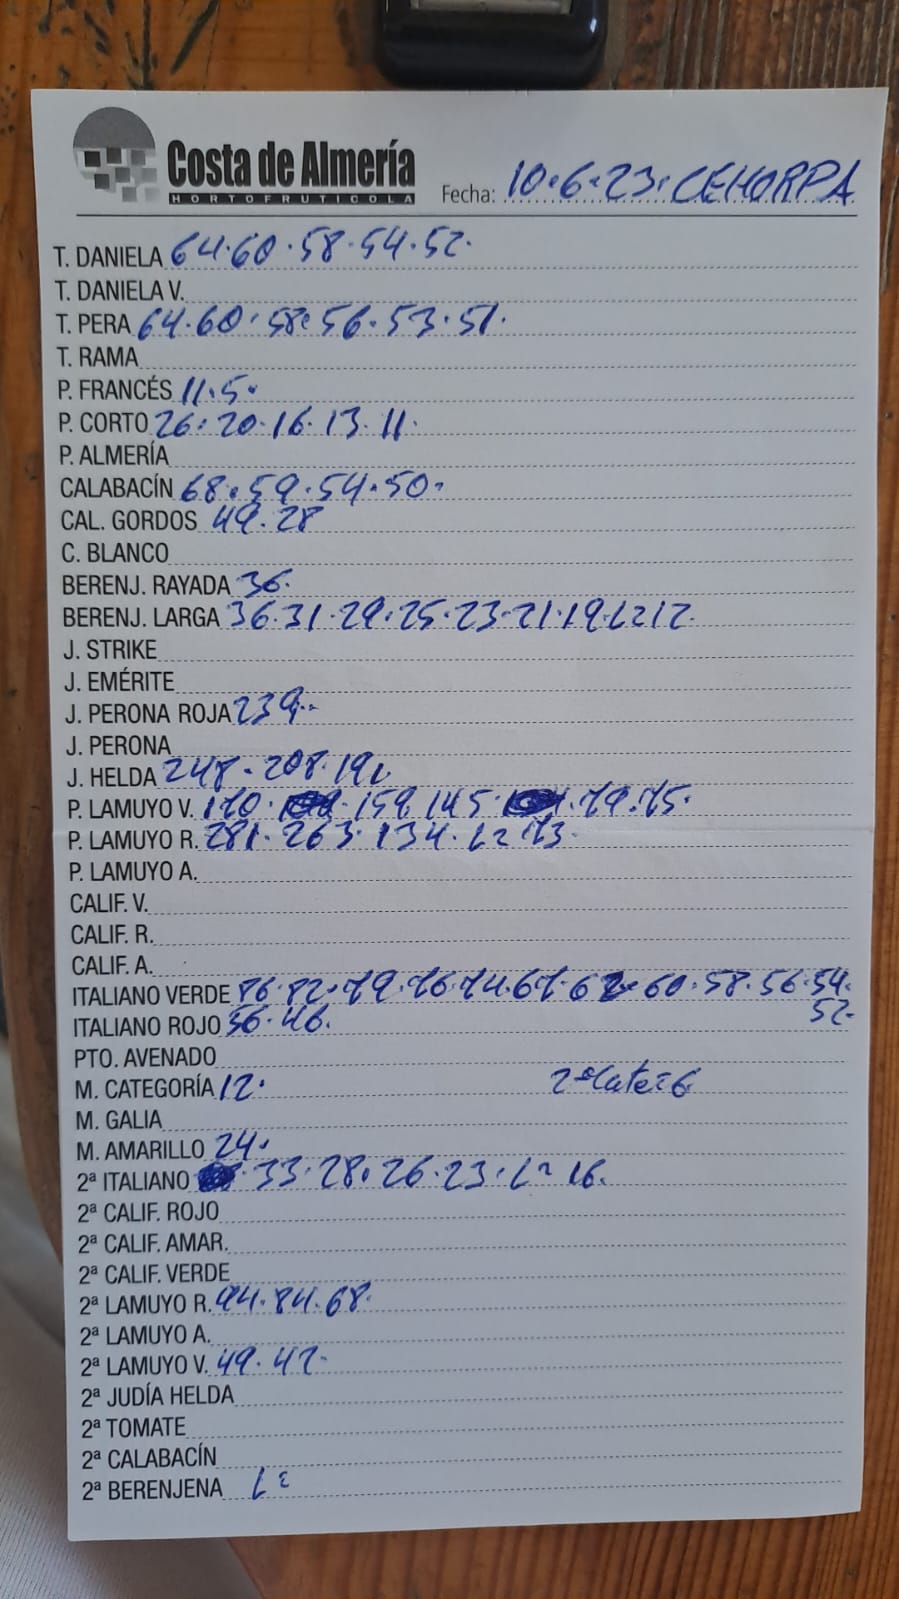 Costa de Almería
HORTOFRUTICOLA
Fecha: 10.6.23. CEHORPA
T. DANIELA 64.60.58.54.52.
T. DANIELA V.
T. PERA 64.60.58.56.53.51.
T. RAMA
P. FRANCÉS 11.5.
P. CORTO 26.20.16.13.11.
P. ALMERÍA
CALABACÍN 68.59.54.50.
CAL. GORDOS 49.28
C. BLANCO
BERENJ. RAYADA 36.
BERENJ. LARGA 36.31.29.25.23.21.19.
J. STRIKE
J. EMÉRITE
J. PERONA ROJA 239.
J. PERONA
J. HELDA 248.208.191
P. LAMUYO V. 170. 159.145. 79.75.
P. LAMUYO R. 281.263.134. 73.
P. LAMUYO A.
CALIF. V.
CALIF. R.
CALIF. A.
ITALIANO VERDE 86.82.79.76.74.67.62.60.58.56.54.
52.
ITALIANO ROJO 56.46.
PTO. AVENADO
M. CATEGORÍA 12. 2ª Cate=6
M. GALIA
M. AMARILLO 24.
2ª ITALIANO 33.28.26.23. 16.
2ª CALIF. ROJO
2ª CALIF. AMAR.
2ª CALIF. VERDE
2ª LAMUYO R. 94.84.68.
2ª LAMUYO A.
2ª LAMUYO V. 49.42.
2ª JUDÍA HELDA
2ª TOMATE
2ª CALABACÍN
2ª BERENJENA